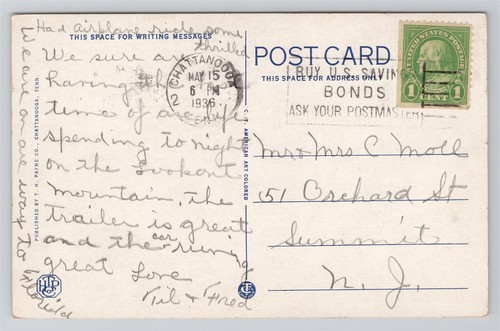 Had airplane ride some
thrilled
THIS SPACE FOR WRITING MESSAGES
We sure are
having the
time of are life
spending to night
on the Lookout
Mountain, the
trailer is great
and the car runing
great Love
Til & Fred
We are on are way to Florida
PUBLISHED BY T. H. PAYNE CO., CHATTANOOGA, TENN.
C. T. AMERICAN ART COLORED
CHATTANOOGA
MAY 15
6 PM
1936
2
POST CARD
THIS SPACE FOR ADDRESS ONLY
BUY U.S. SAVINGS
BONDS
ASK YOUR POSTMASTER
UNITED STATES POSTAGE
1 CENT 1
Mr & Mrs C Moll
51 Orchard St
Summit
N. J.